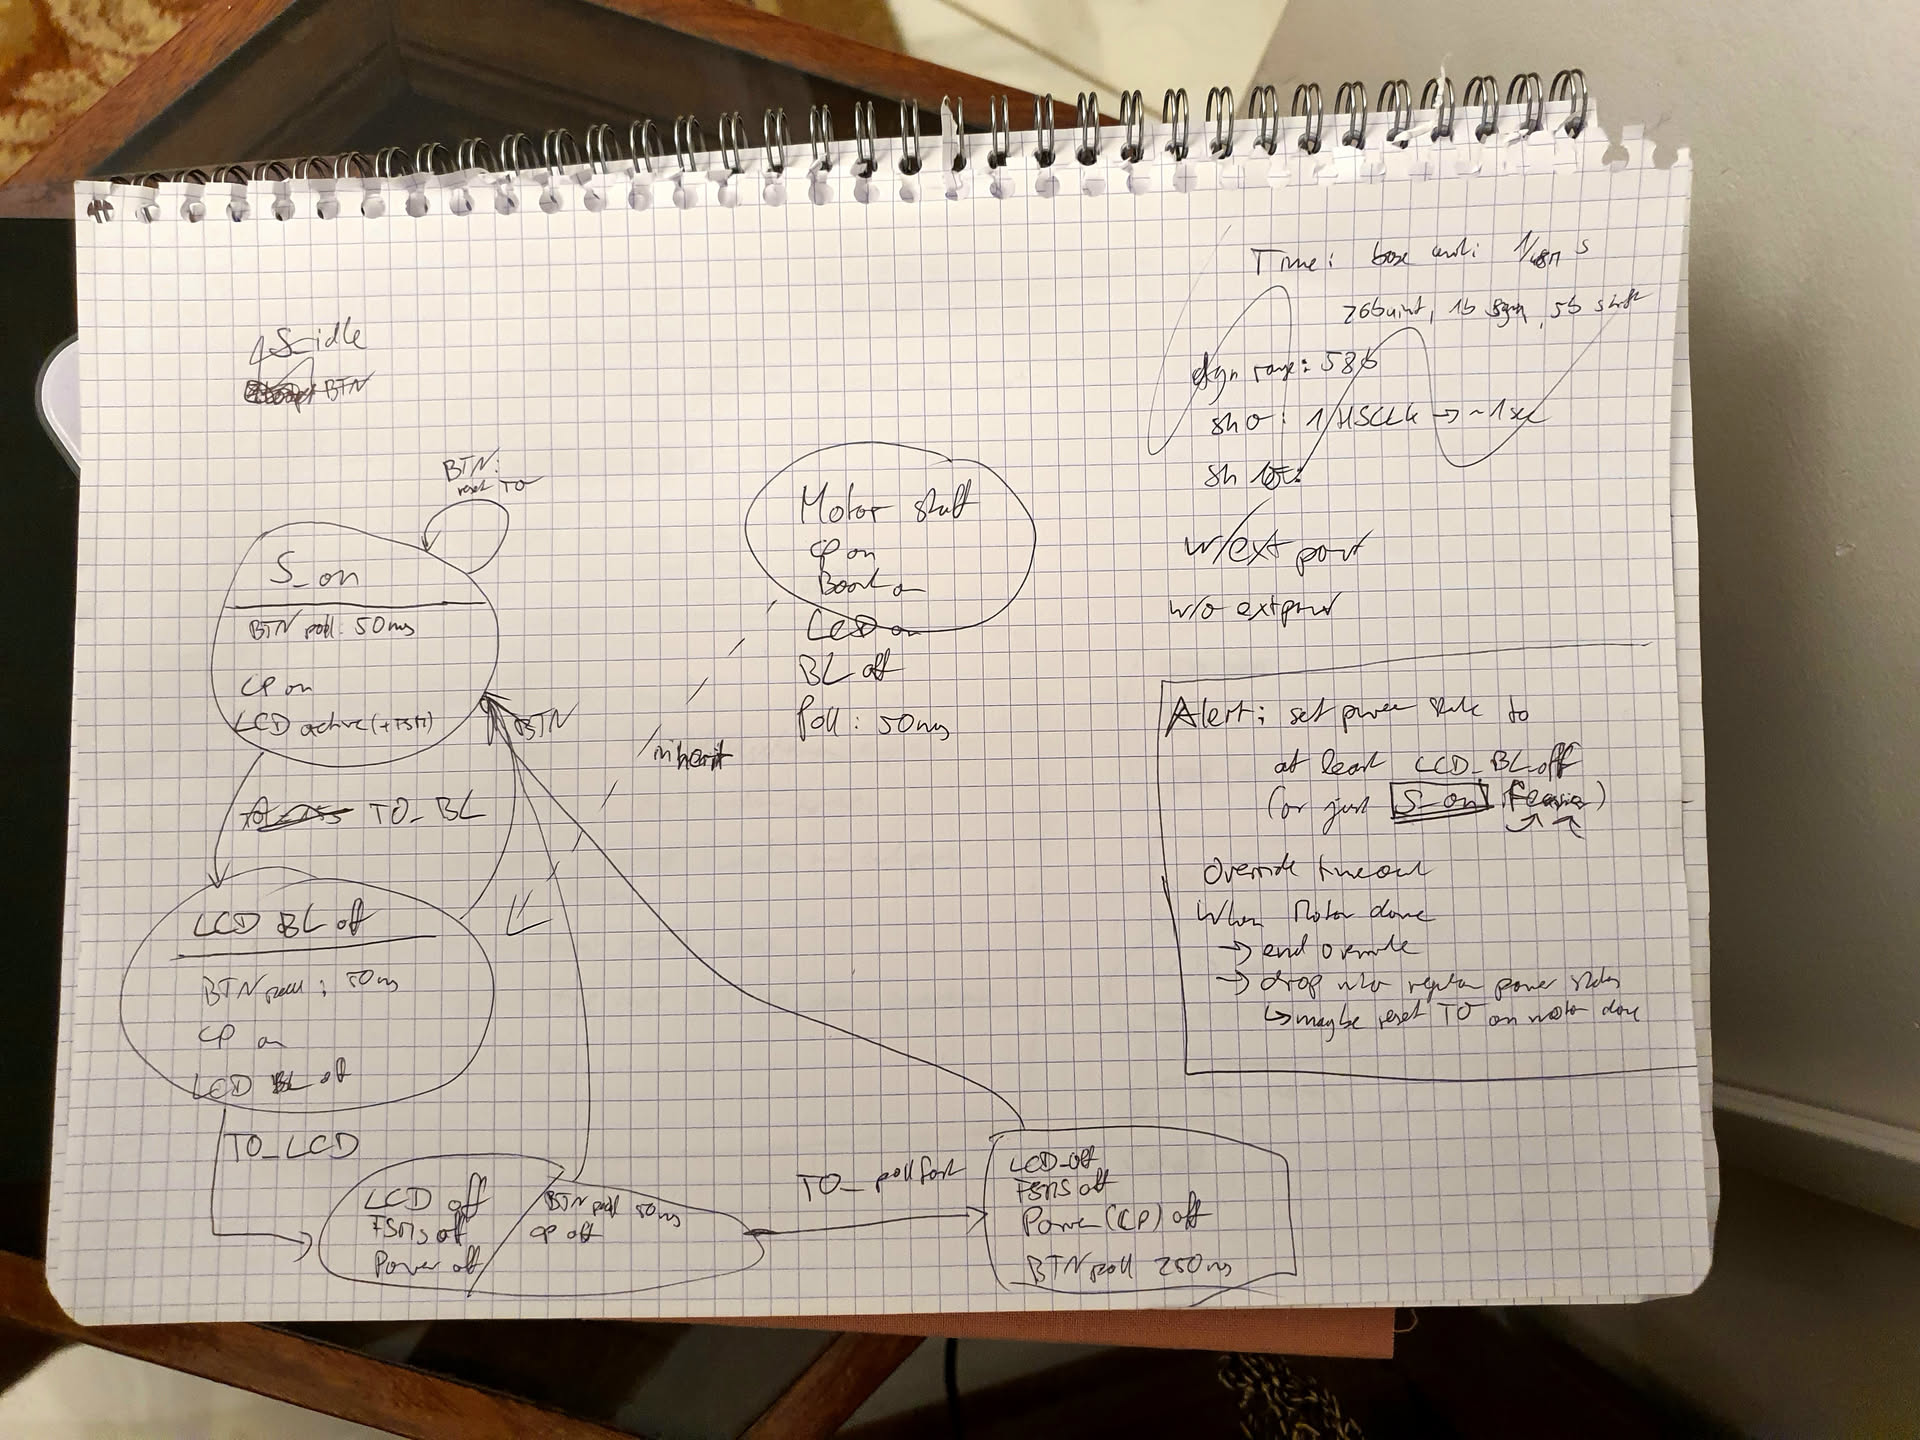 S_idle
BTN
BTN:
reset TO
S_on
BTN poll: 50ms
CP on
LCD active (+FSM)
BTN
TO_BL
LCD BL off
BTN poll: 50ms
CP on
LCD BL off
TO_LCD
LCD off
FSMs off
Power off
BTN poll 50ms
CP off
TO_poll fast
LCD_off
FSMs off
Power (CP) off
BTN poll 250ms
inherit
Motor
CP on
Boost on
LCD on
BL off
Poll: 50ms
Time: base unit: 1/48M s
26b uint, 1b sign, 5b shift
dyn range: 58b
sh 0: 1/HSCLK → ~1sec
sh
w/ext
w/o ext
Alert: set power state to
at least LCD_BL_off
(or just S_on
Override timeout
When Motor done
→ end override
→ drop into regular power states
↳ maybe reset TO on motor done